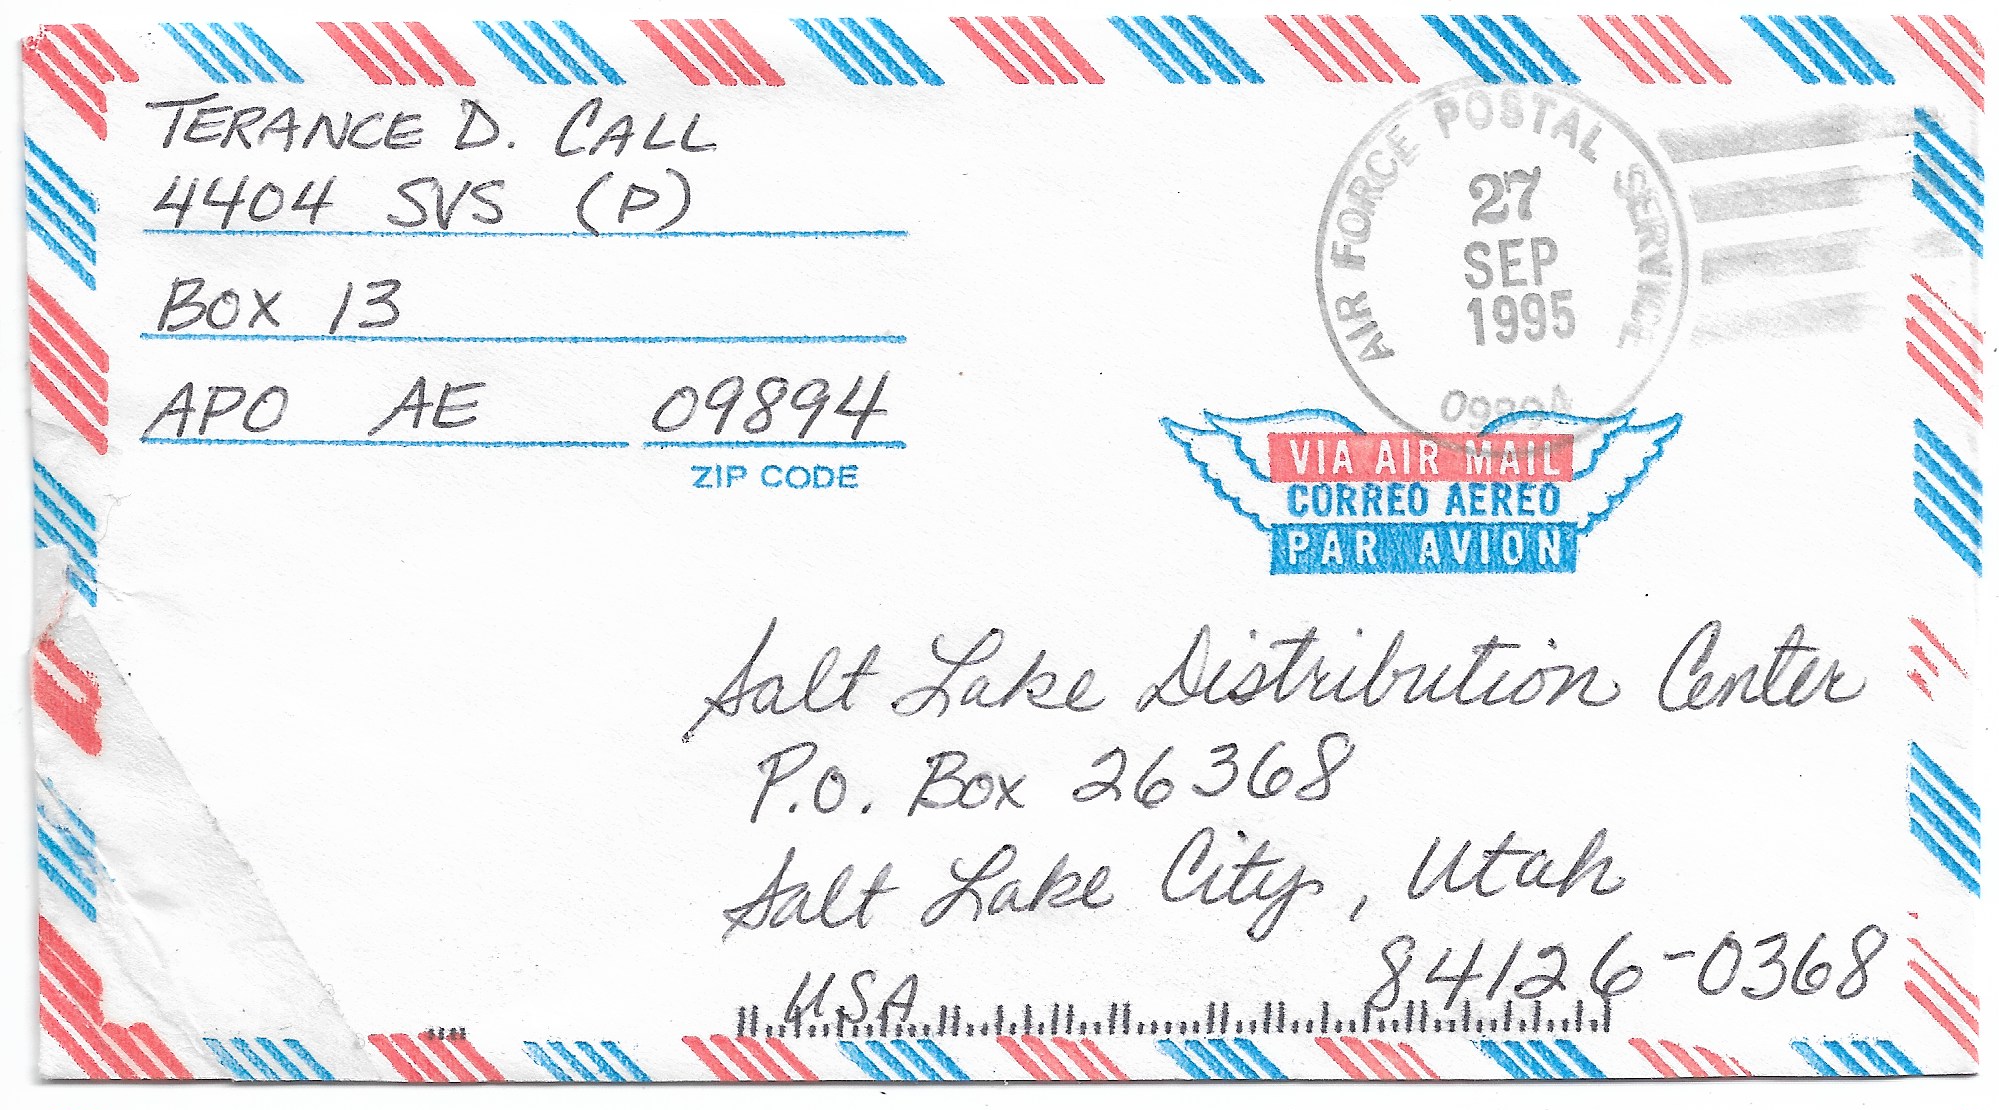 TERANCE D. CALL
4404 SVS (P)
BOX 13
APO AE 09894
ZIP CODE
AIR FORCE POSTAL SERVICE
27
SEP
1995
VIA AIR MAIL
CORREO AEREO
PAR AVION
Salt Lake Distribution Center
P.O. Box 26368
Salt Lake City, Utah
84126-0368
USA